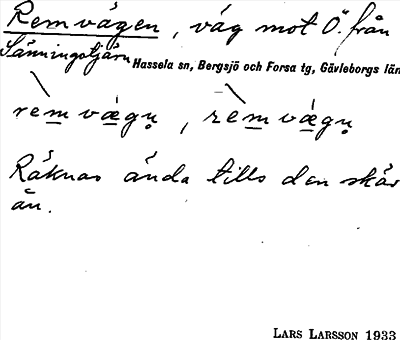 Remvägen, väg mot Ö. från
Sänningstjärn
Hassela sn, Bergsjö och Forsa tg, Gävleborgs län
remvægn̥, remvægn̥
Räknas ända tills den skär
ån.
LARS LARSSON 1933